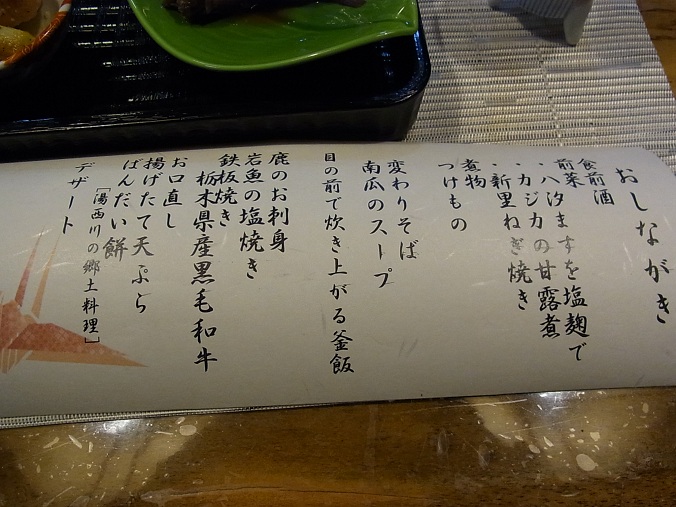 おしながき
食前酒
前菜
・八汐ますを塩麹で
・カジカの甘露煮
・新里ねぎ焼き
煮物
つけもの
変わりそば
南瓜のスープ
目の前で炊き上がる釜飯
鹿のお刺身
岩魚の塩焼き
鉄板焼き
栃木県産黒毛和牛
お口直し
揚げたて天ぷら
ばんだい餅
[湯西川の郷土料理]
デザート